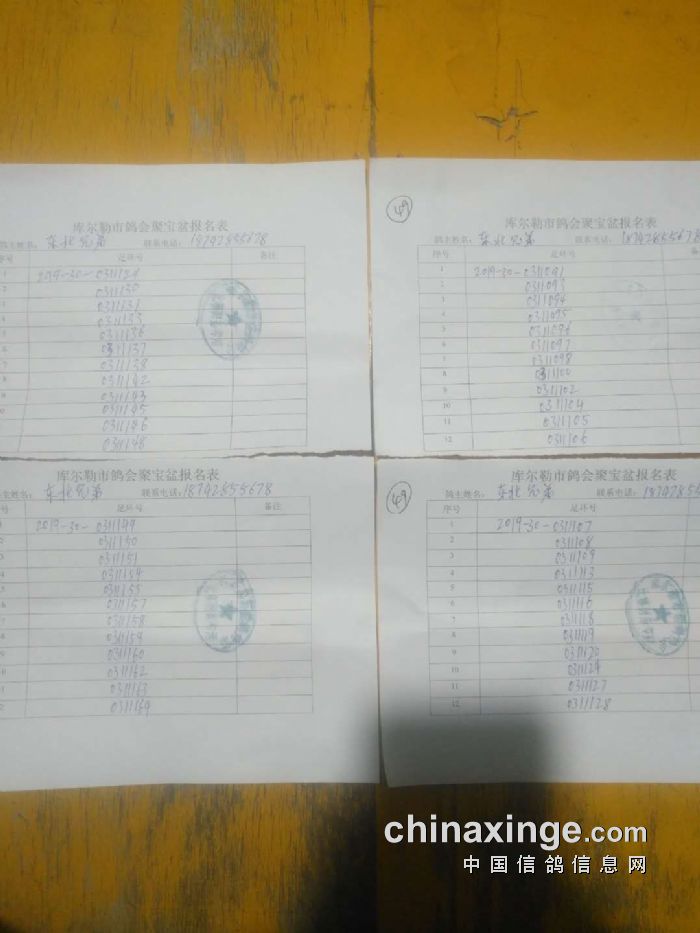 库尔勒市鸽会聚宝盆报名表
鸽主姓名: 东北兄弟 联系电话: 18742855678
序号 足环号 备注
1 2019-30-0311129
2 0311130
3 0311131
4 0311133
5 0311136
6 0311137
7 0311138
8 0311142
9 0311143
0 0311145
0311146
0311148
49
库尔勒市鸽会聚宝盆报名表
鸽主姓名: 东北兄弟 联系电话: 18742855678
序号 足环号 备
1 2019-30-0311091
2 0311093
3 0311094
4 0311095
5 0311096
6 0311097
7 0311098
8 0311100
9 0311102
10 0311104
11 0311105
12 0311106
库尔勒市鸽会聚宝盆报名表
鸽主姓名: 东北兄弟 联系电话: 18742855678
号 足环号 备注
2019-30-0311149
0311150
0311151
0311154
0311155
0311157
0311158
0311159
0311160
0311162
0311163
0311169
49
库尔勒市鸽会聚宝盆报名表
鸽主姓名: 东北兄弟 联系电话: 187428556
序号 足环号
1 2019-30-0311107
2 0311108
3 0311109
4 0311113
5 0311115
6 0311116
7 0311118
8 0311119
9 0311120
10 0311124
11 0311127
12 0311128
chinaxinge.com
中国信鸽信息网